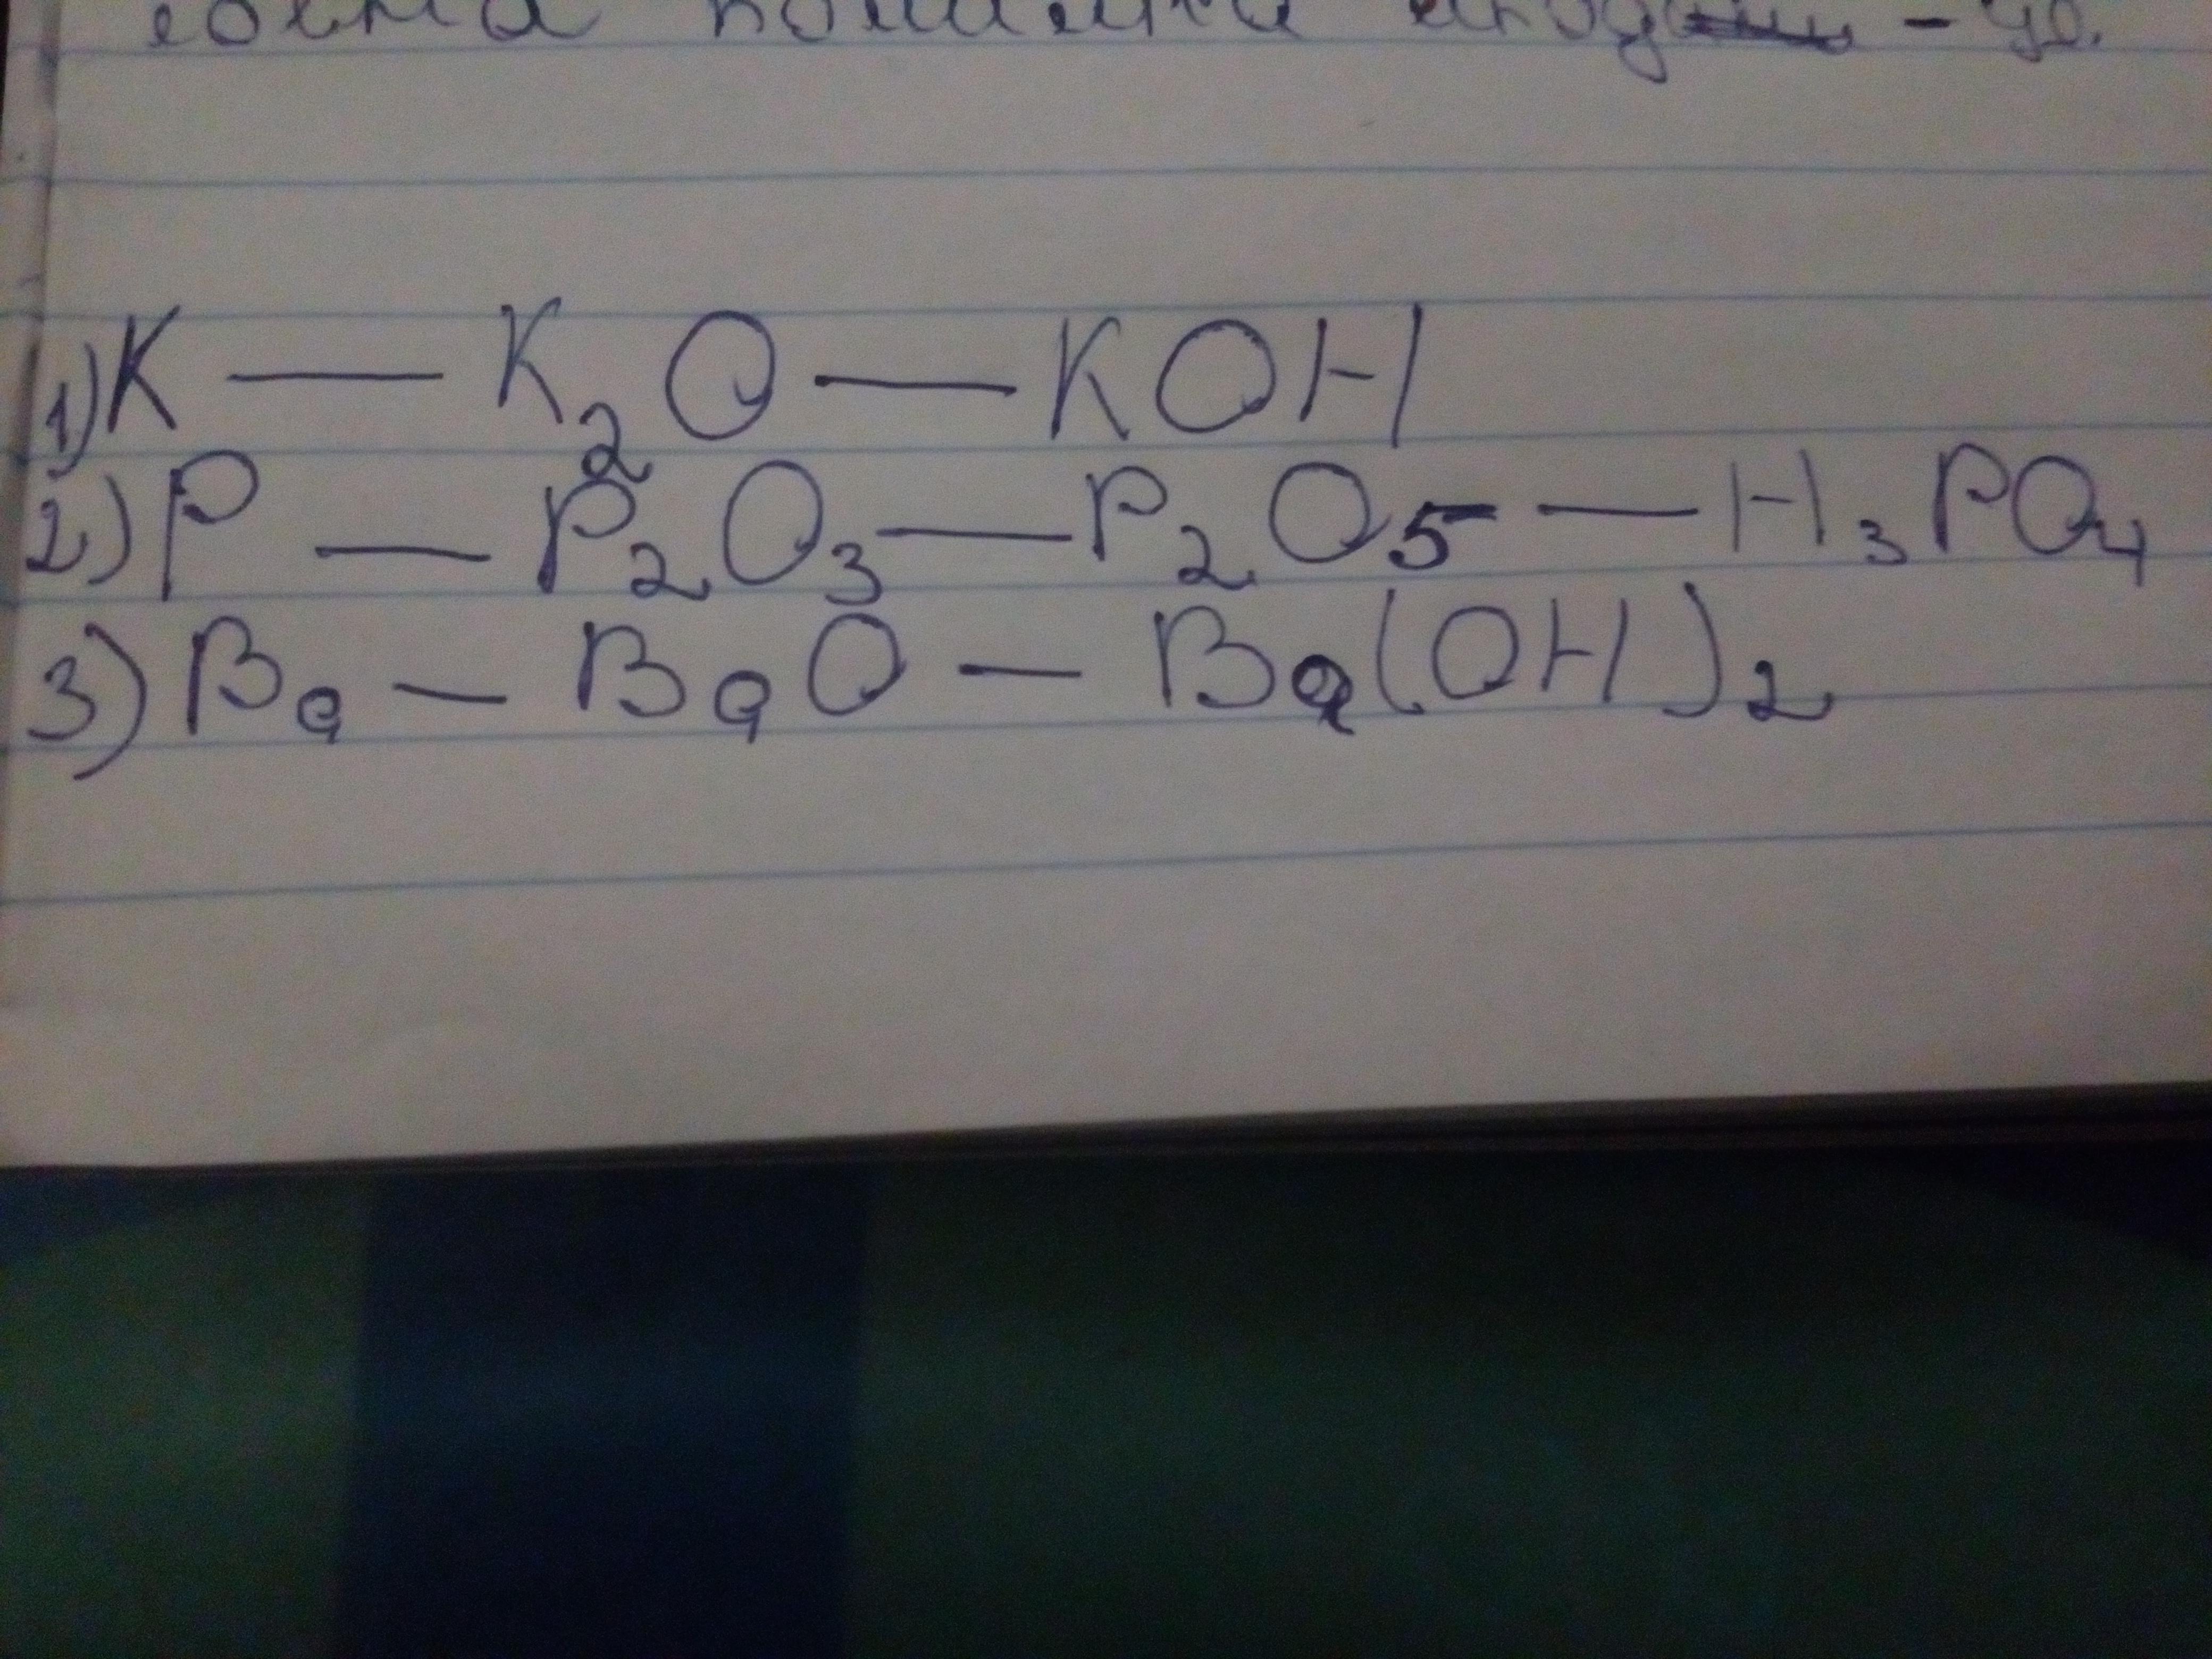 1) K — K₂O — KOH
2) P — P₂O₃ — P₂O₅ — H₃PO₄
3) Ba — BaO — Ba(OH)₂